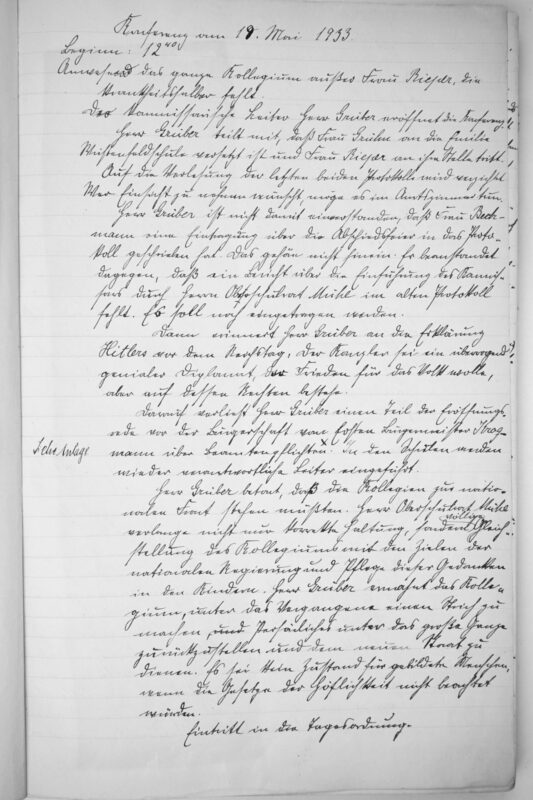 Konferenz am 18. Mai 1933.
Beginn: 12⁴⁰
Anwesend das ganze Kollegium außer Frau Rieper, die
krankheitshalber fehlt.
Der kommissarische Leiter Herr Gruber eröffnet die Konferenz.
Herr Gruber teilt mit, daß Frau Gruben an die Emilie
Wüstenfeldschule versetzt ist und Frau Rieper an ihre Stelle tritt.
Auf die Verlesung der letzten beiden Protokolle wird verzichtet
Wer Einsicht zu nehmen wünscht, möge es im Amtszimmer tun.
Herr Gruber ist nicht damit einverstanden, daß Frau Beck-
mann eine Eintragung über die Abschiedsfeier in das Proto-
koll geschrieben hat. Das gehöre nicht hinein. Er beanstandet
dagegen, daß ein Bericht über die Einführung des Kommis-
sars durch Herrn Oberschulrat Mühl im alten Protokoll
fehlt. Es soll noch eingetragen werden.
Dann erinnert Herr Gruber an die Erklärung
Hitlers vor dem Reichstag: Der Kanzler sei ein überragend
genialer Diplomat, der Frieden für das Volk wolle,
aber auf dessen Rechten bestehe.
Darauf verliest Herr Gruber einen Teil der Eröffnungs-
rede vor der Bürgerschaft vom Ersten Bürgermeister Krog-
mann über Beamtenpflichten. In den Schulen werden
Siehe Anlage
wieder verantwortliche Leiter eingeführt.
Herr Gruber betont, daß die Kollegien zur natio-
nalen Front stehen müßten. Herr Oberschulrat Mühl
verlange nicht nur korrekte Haltung, sondern völlige Gleich-
stellung des Kollegiums mit den Zielen der
nationalen Regierung und Pflege dieser Gedanken
in den Kindern. Herr Gruber ermahnt das Kolle-
gium, unter das Vergangene einen Strich zu
machen, und Persönliches unter das große Ganze
zurückzustellen und dem neuen Staat zu
dienen. Es sei kein Zustand für gebildete Menschen,
wenn die Gesetze der Höflichkeit nicht beachtet
würden.
Eintritt in die Tagesordnung.